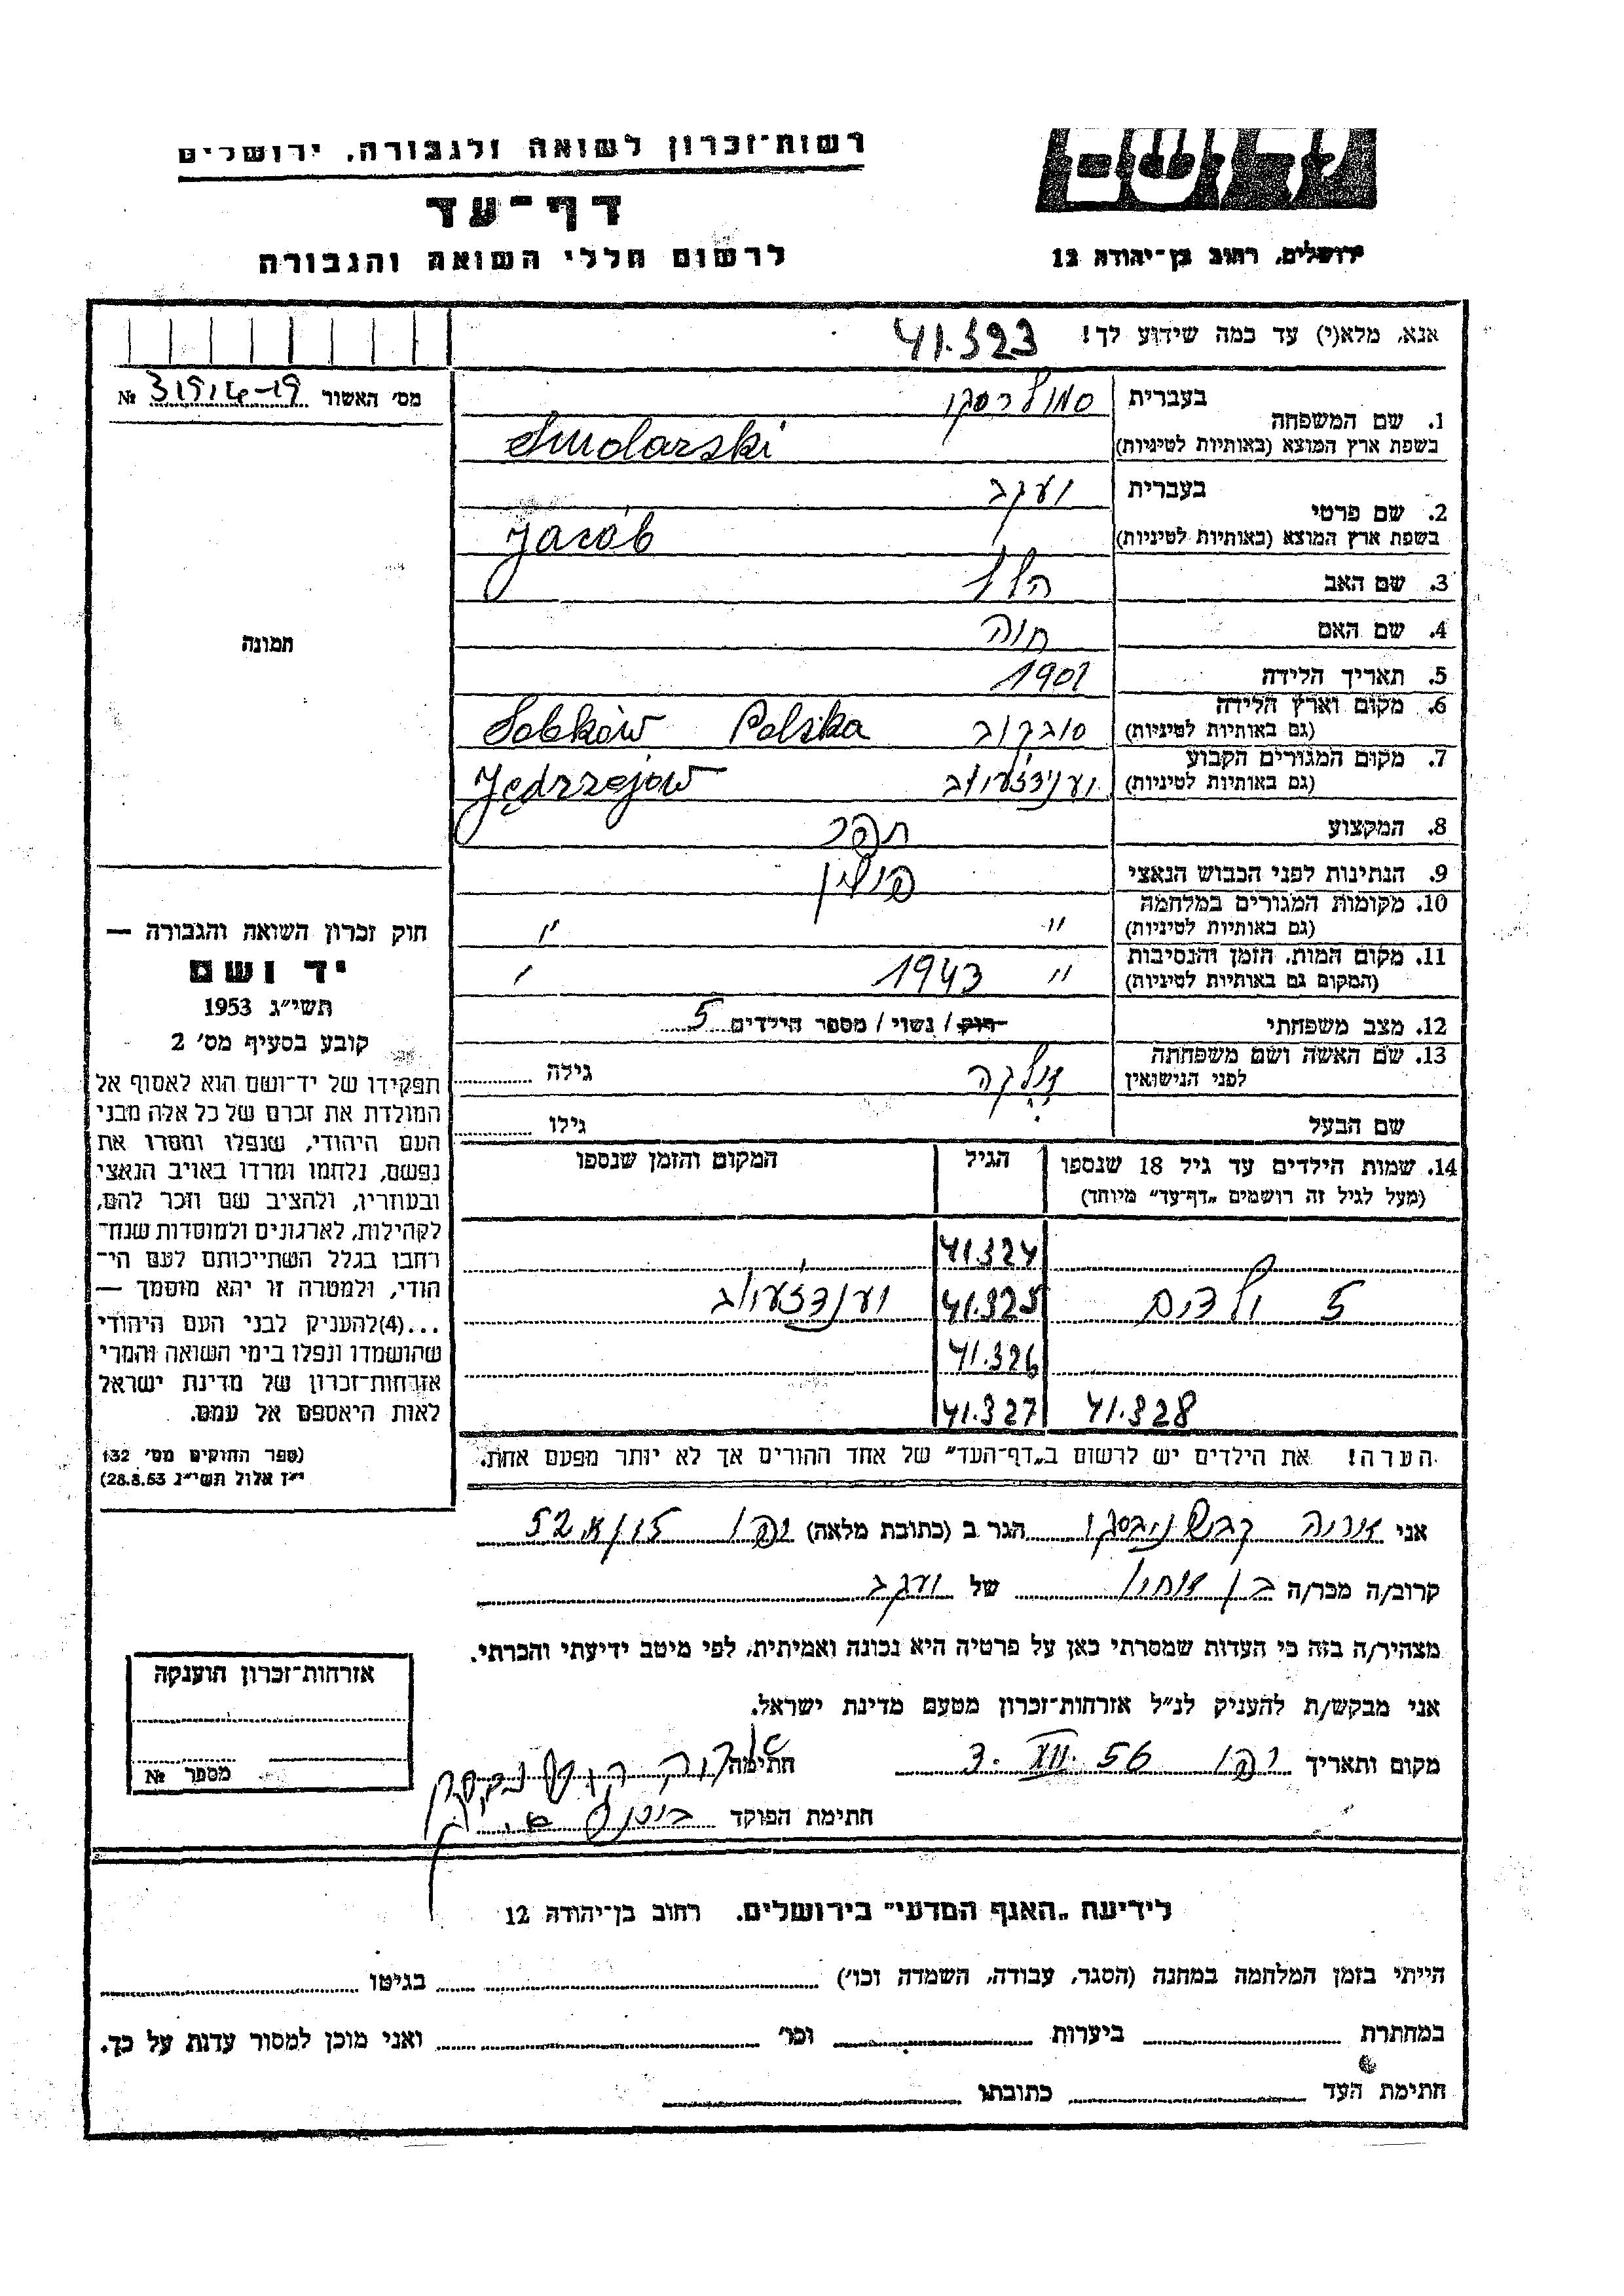 רשות־זכרון לשואה ולגבורה, ירושלים
דף־עד
לרשום חללי השואה והגבורה
ירושלים, רחוב בן־יהודה 12
אנא, מלא(י) עד כמה שידוע לך! 41.323
מס׳ האשור 31914-19 №
1. שם המשפחה
בעברית סמולרסקי
בשפת ארץ המוצא (באותיות לטיניות) Smolarski
2. שם פרטי
בעברית יעקב
בשפת ארץ המוצא (באותיות לטיניות) Jacób
3. שם האב הלל
4. שם האם חוה
5. תאריך הלידה 1901
6. מקום וארץ הלידה
(גם באותיות לטיניות) סובקוב Sobków Polska
7. מקום המגורים הקבוע
(גם באותיות לטיניות) Jędrzejow
8. המקצוע תפר
9. הנתינות לפני הכבוש הנאצי פולין
10. מקומות המגורים במלחמה
(גם באותיות לטיניות) " "
11. מקום המות, הזמן והנסיבות
(המקום גם באותיות לטיניות) " 1943 "
12. מצב משפחתי רוק / נשוי / מספר הילדים 5
13. שם האשה ושם משפחתה
לפני הנישואין גילה
שם הבעל גילו
14. שמות הילדים עד גיל 18 שנספו הגיל המקום והזמן שנספו
(מעל לגיל זה רושמים „דף־עד” מיוחד)
41.324
5 ילדים 41.325
41.326
41.328 41.327
הערה! את הילדים יש לרשום ב„דף־העד” של אחד ההורים אך לא יותר מפעם אחת.
תמונה
חוק זכרון השואה והגבורה —
יד ושם
תשי״ג 1953
קובע בסעיף מס׳ 2
תפקידו של יד־ושם הוא לאסוף אל
המולדת את זכרם של כל אלה מבני
העם היהודי, שנפלו ומסרו את
נפשם, נלחמו ומרדו באויב הנאצי
ובעוזריו, ולהציב שם וזכר להם,
לקהילות, לארגונים ולמוסדות שנח־
רבו בגלל השתייכותם לעם הי־
הודי, ולמטרה זו יהא מוסמך —
...(4)להעניק לבני העם היהודי
שהושמדו ונפלו בימי השואה והמרי
אזרחות־זכרון של מדינת ישראל
לאות היאספם אל עמם.
(ספר החוקים מס׳ 132
י״ז אלול תשי״ג 28.8.53)
אני אריה הגר ב (כתובת מלאה) יפו 52
קרוב/ה מכר/ה בן אחיו של יעקב
מצהיר/ה בזה כי העדות שמסרתי כאן על פרטיה היא נכונה ואמיתית, לפי מיטב ידיעתי והכרתי.
אני מבקש/ת להעניק לנ״ל אזרחות־זכרון מטעם מדינת ישראל.
מקום ותאריך יפו 3. XII. 56 חתימה
חתימת הפוקד
אזרחות־זכרון הוענקה
מספר №
לידיעת „האגף המדעי” בירושלים, רחוב בן־יהודה 12
הייתי בזמן המלחמה במחנה (הסגר, עבודה, השמדה וכו׳) בגיטו
במחתרת ביערות וכו׳ ואני מוכן למסור עדות על כך.
חתימת העד כתובתו